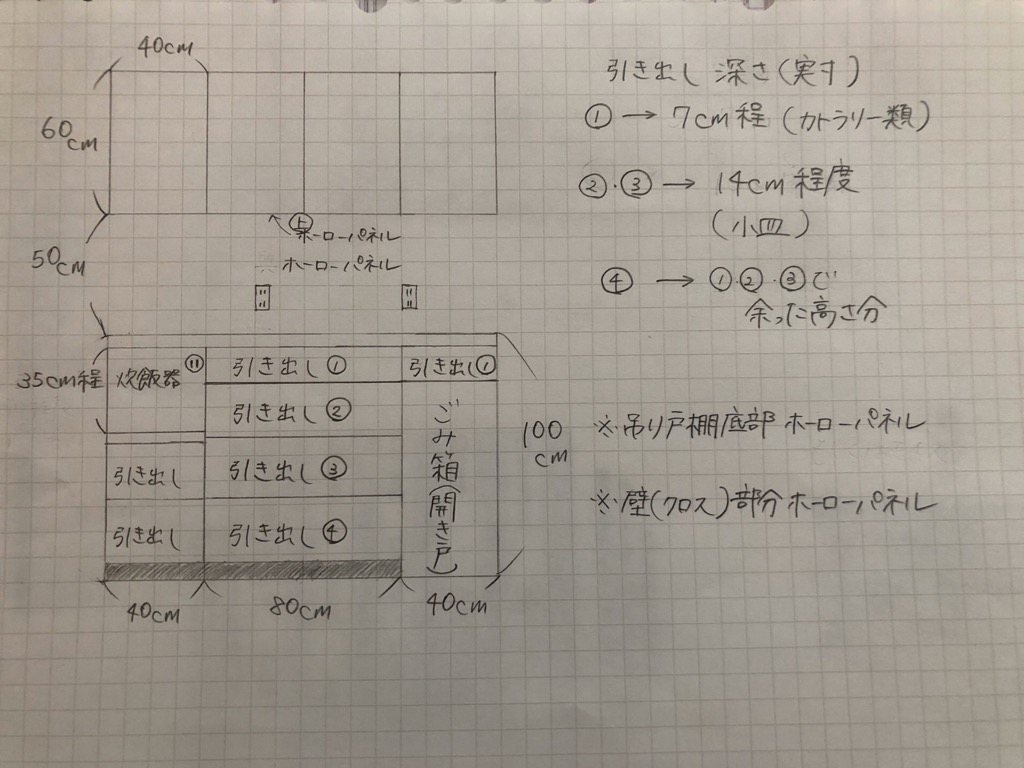 40cm
60cm
50cm
ホーローパネル
ホーローパネル
35cm程
炊飯器
引き出し①
引き出し①
引き出し②
引き出し
引き出し③
引き出し
引き出し④
ごみ箱(開き戸)
100cm
40cm
80cm
40cm
引き出し 深さ(実寸)
① → 7cm程(カトラリー類)
②・③ → 14cm程度
(小皿)
④ → ①②・③で
余った高さ分
※吊り戸棚底部ホーローパネル
※壁(クロス)部分ホーローパネル